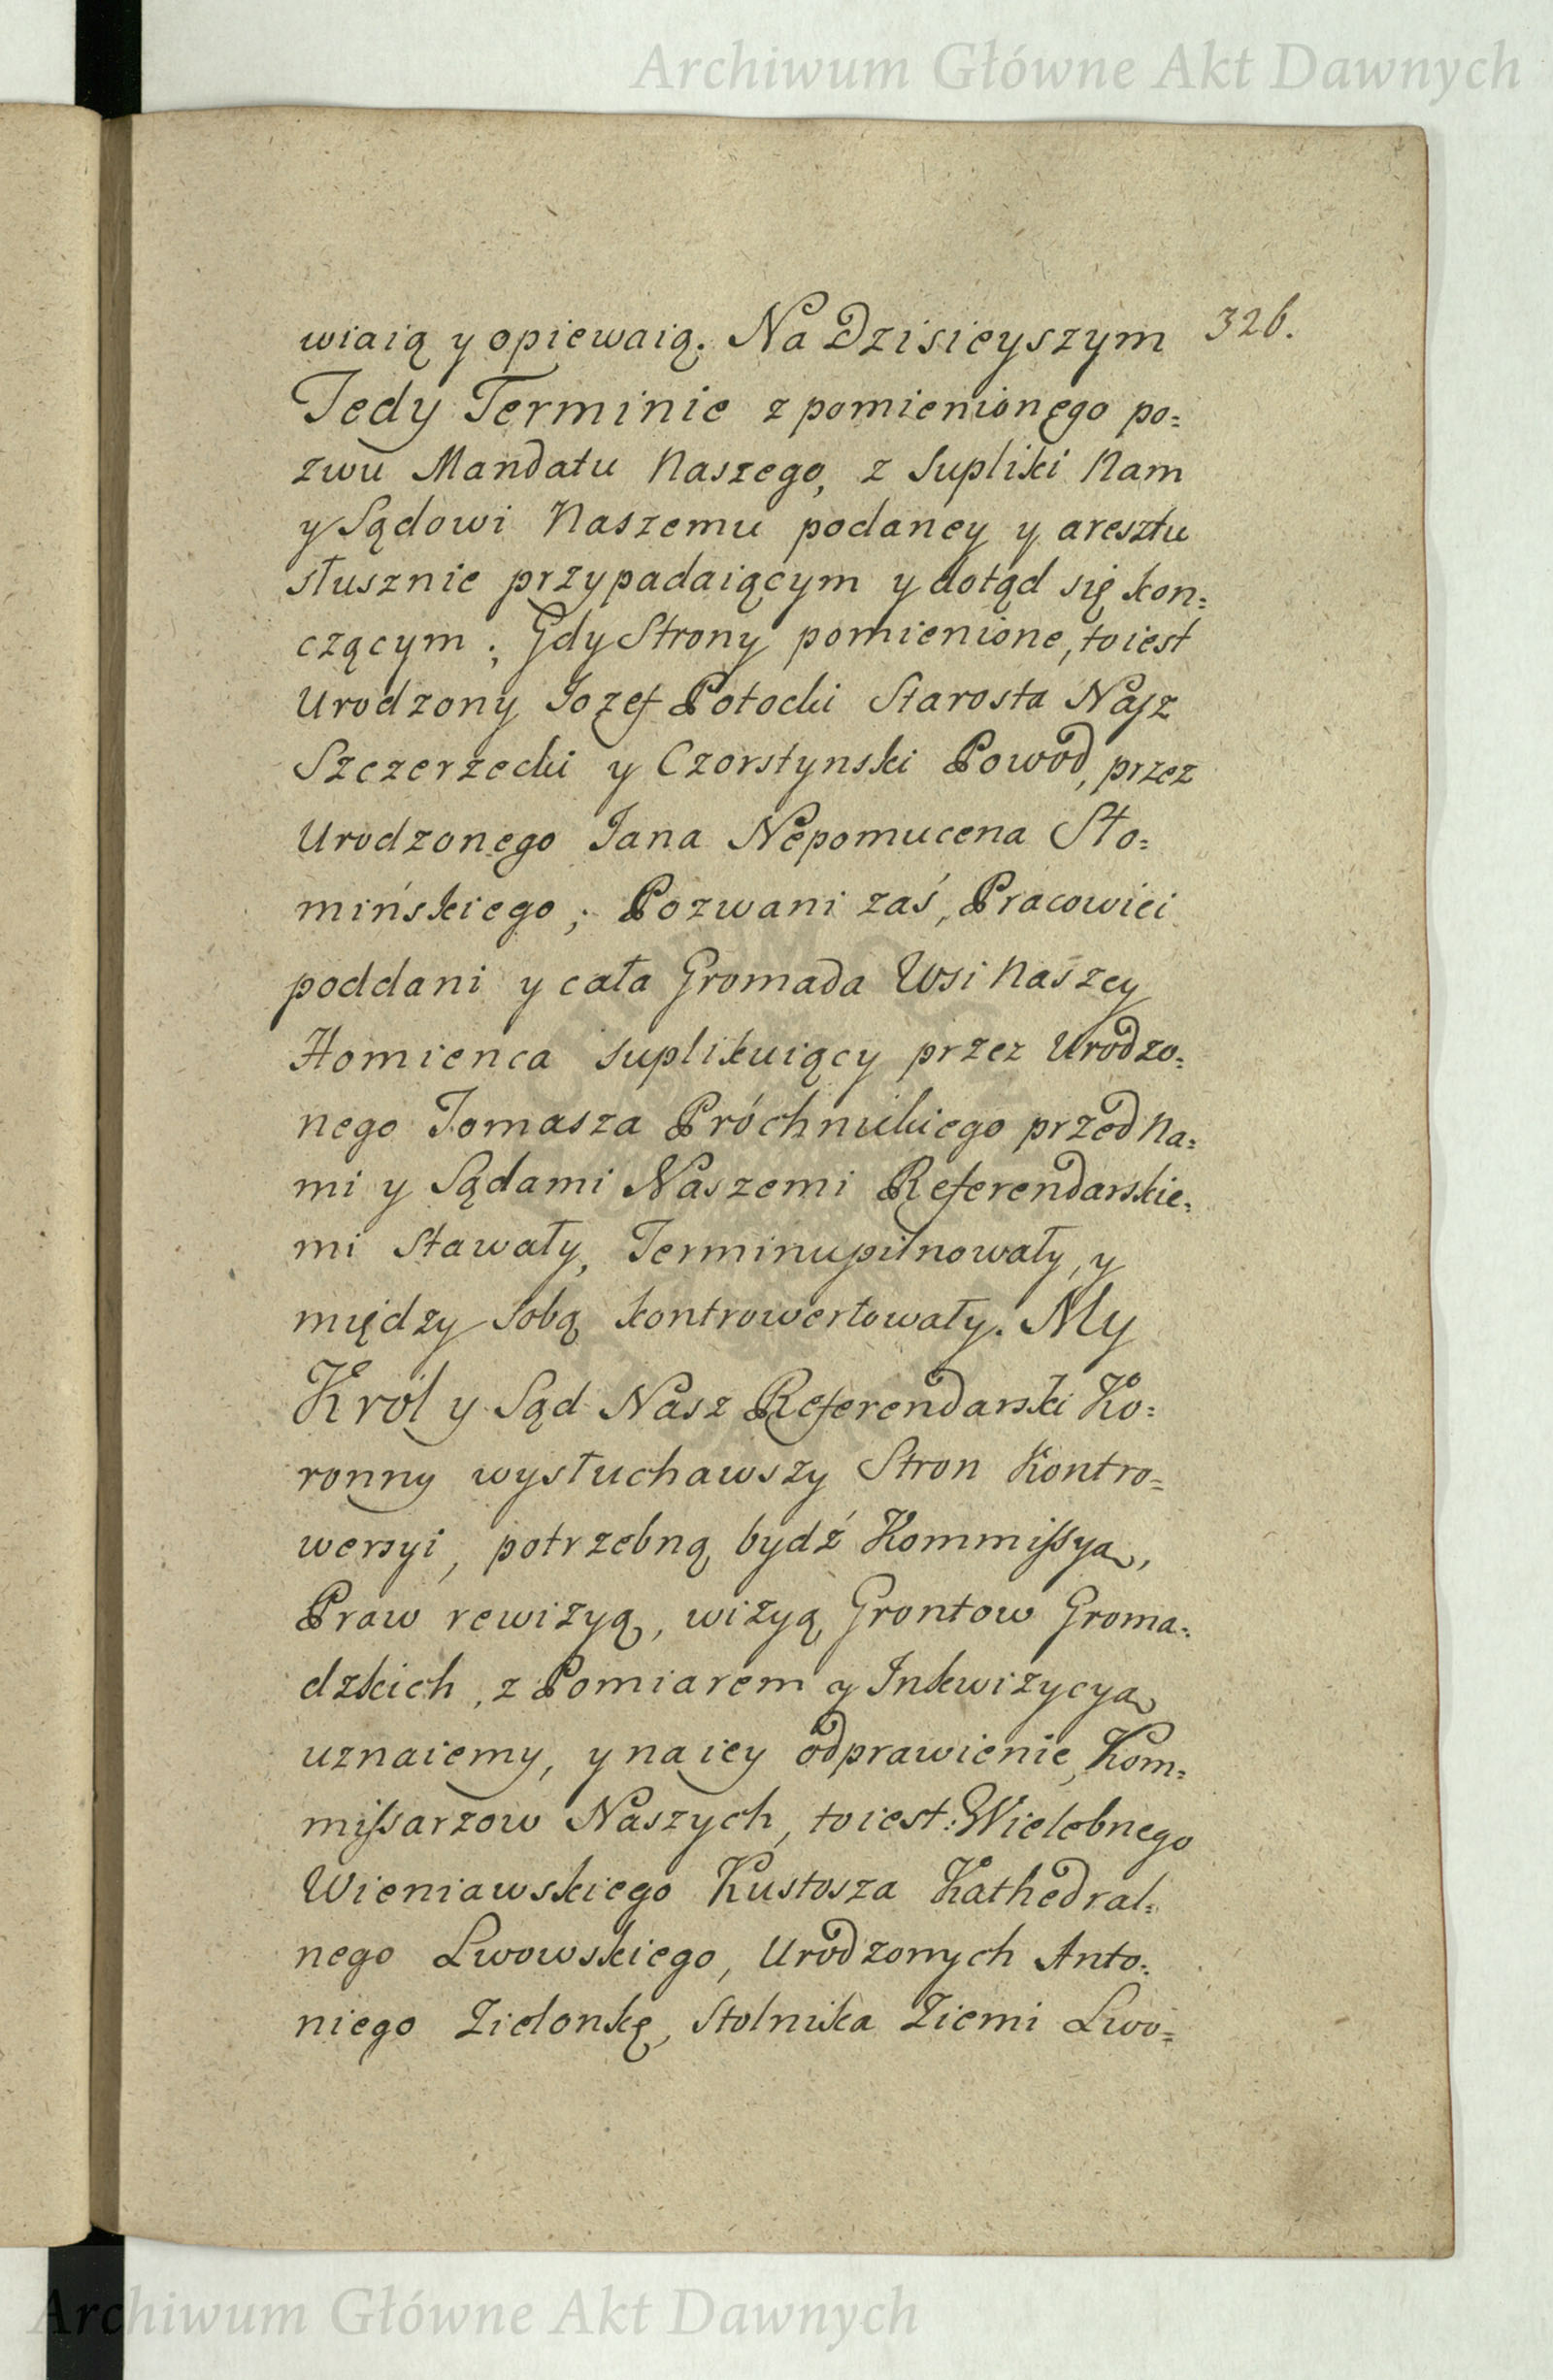 Archiwum Główne Akt Dawnych
326.
wiaią y opiewaią. Na Dzisieyszym
Tedy Terminie z pomienionego po=
zwu Mandatu Naszego, z Supliki Nam
y Sądowi Naszemu podaney y aresztu
słusznie przypadaiącym y dotąd się kon=
czącym; Gdy Strony pomienione, to iest
Urodzony Iozef Potocki Starosta Nasz
Szczerzecki y Czorstynski Powod, przez
Urodzonego Jana Nepomucena Sło=
mińskiego; Pozwani zaś, Pracowici
poddani y cała Gromada Wsi Naszey
Homienca suplikuiący przez Urodzo=
nego Tomasza Próchnickiego przed Na=
mi y Sądami Naszemi Referendarskie=
mi stawały, Terminu pilnowały, y
między sobą kontrowertowały. My
Król y Sąd Nasz Referendarski Ko=
ronny wysłuchawszy Stron Kontro=
wersyi, potrzebną bydź Kommissyą,
Praw rewizyą, wizyą Grontow Groma=
dzkich, z Pomiarem y Inkwizycyą
uznaiemy, y na iey odprawienie, Kom=
missarzow Naszych, to iest: Wielebnego
Wieniawskiego Kustosza Kathedral=
nego Lwowskiego, Urodzonych Anto=
niego Zielonkę, Stolnika Ziemi Lwo=
Archiwum Główne Akt Dawnych